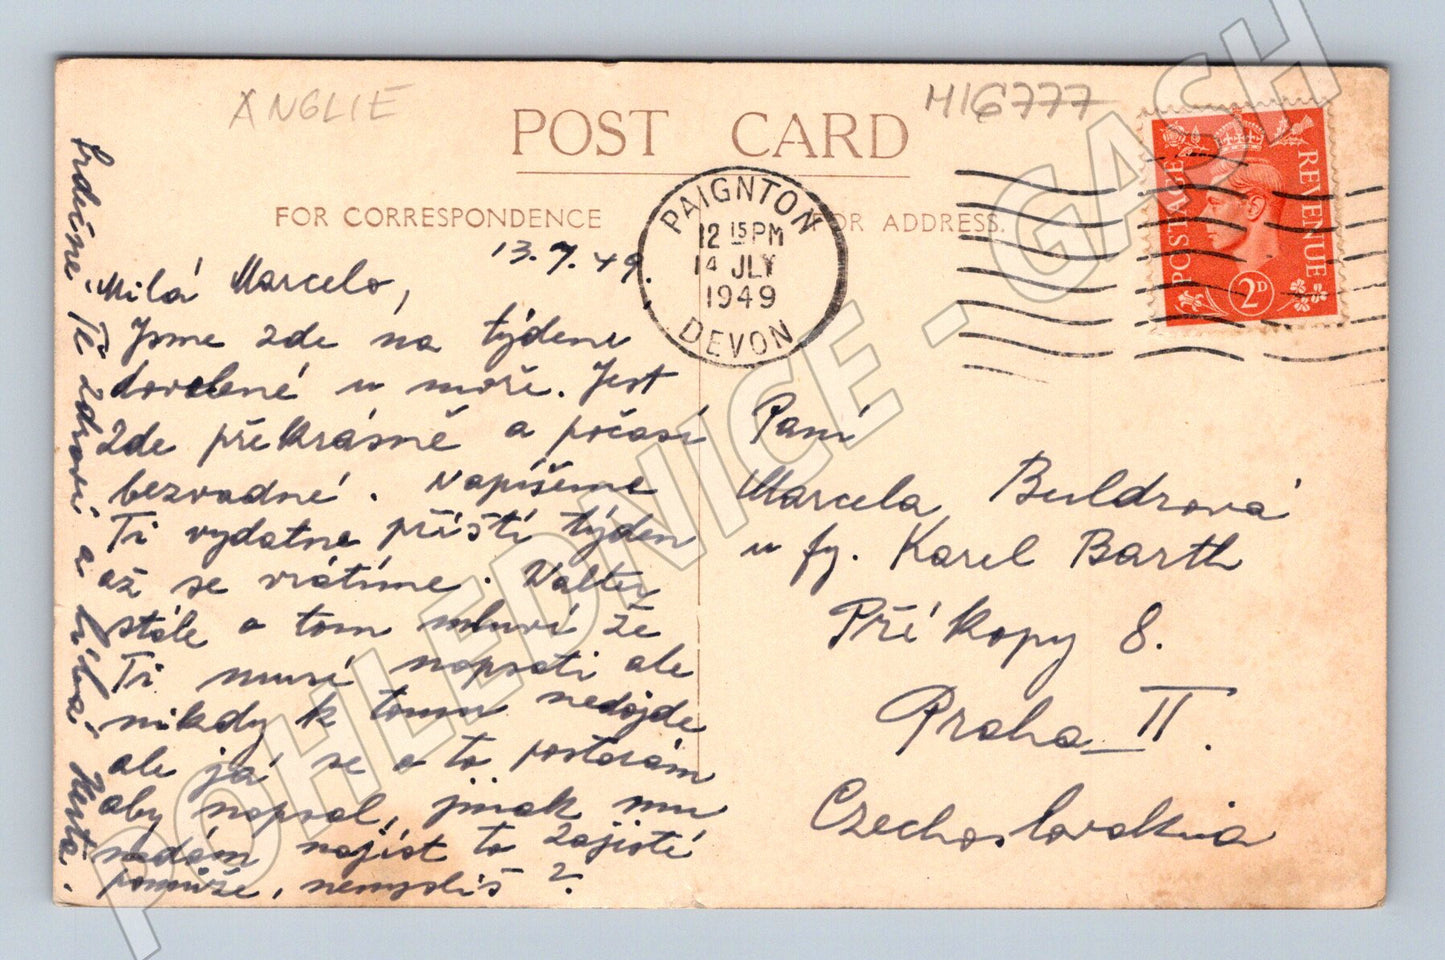 ANGLIE
H16777
POST CARD
FOR CORRESPONDENCE
FOR ADDRESS.
PAIGNTON
12 15 PM
14 JLY
1949
DEVON
POSTAGE
REVENUE
2D
13.7.49.
Milá Marcelo,
Jsme zde na týdenní
dovolené u moře. Jest
zde překrásně a počasí
bezvadné. Napíšeme
Ti vydatně příští týden
až se vrátíme. Walter
stále o tom mluví že
Ti musí napsati ale
nikdy k tomu nedojde
ale já se o to postarám
aby napsal, jinak mu
nedám najíst to zajisté
pomůže, nemyslíš?
Srdečně Tě zdraví a líbá Herta.
Paní
Marcela Buldrová
u fy. Karel Barth
Příkopy 8.
Praha II.
Czechoslovakia
POHLEDNICE - GASH